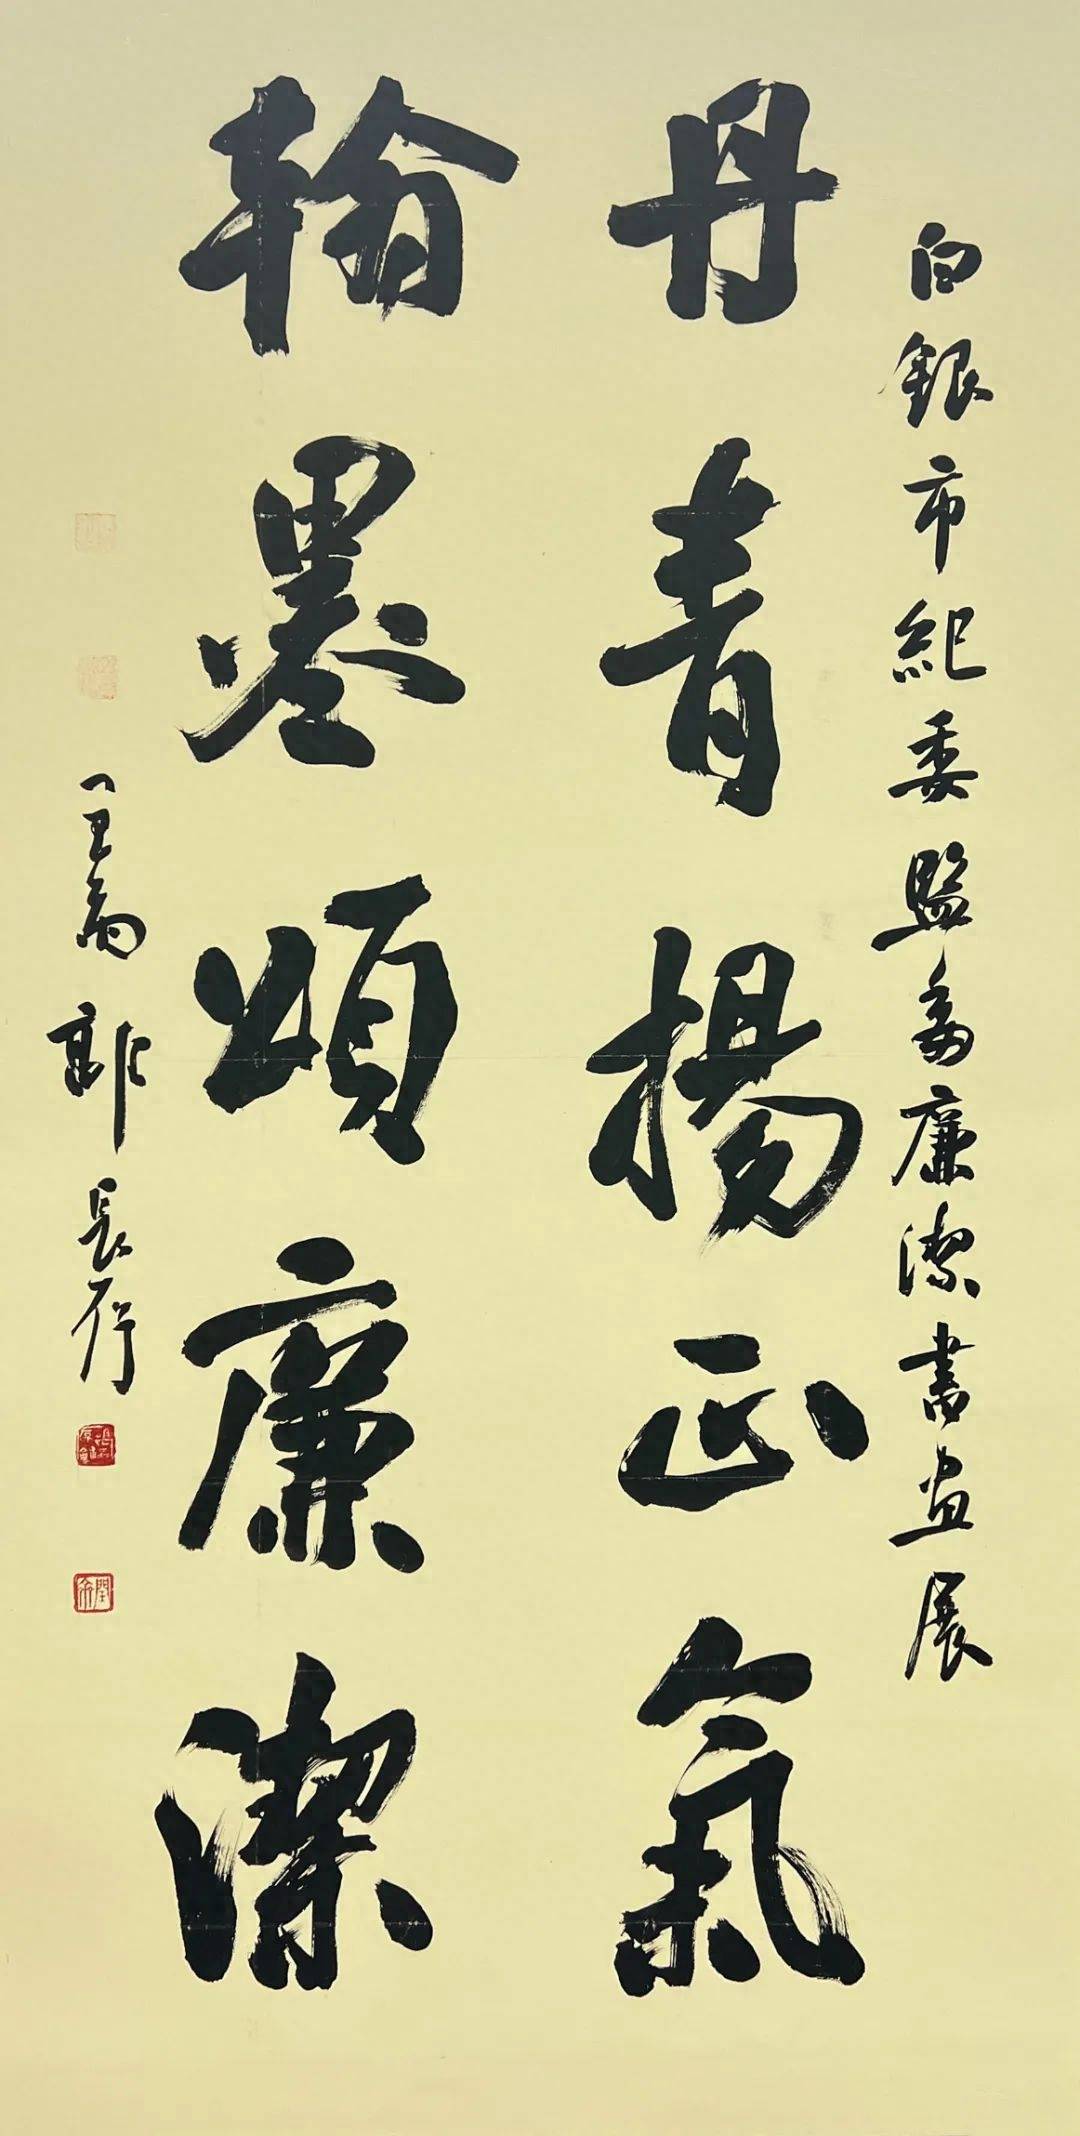 白銀市紀委監委廉潔書畫展
丹青揚正氣
翰墨頌廉潔
壬寅